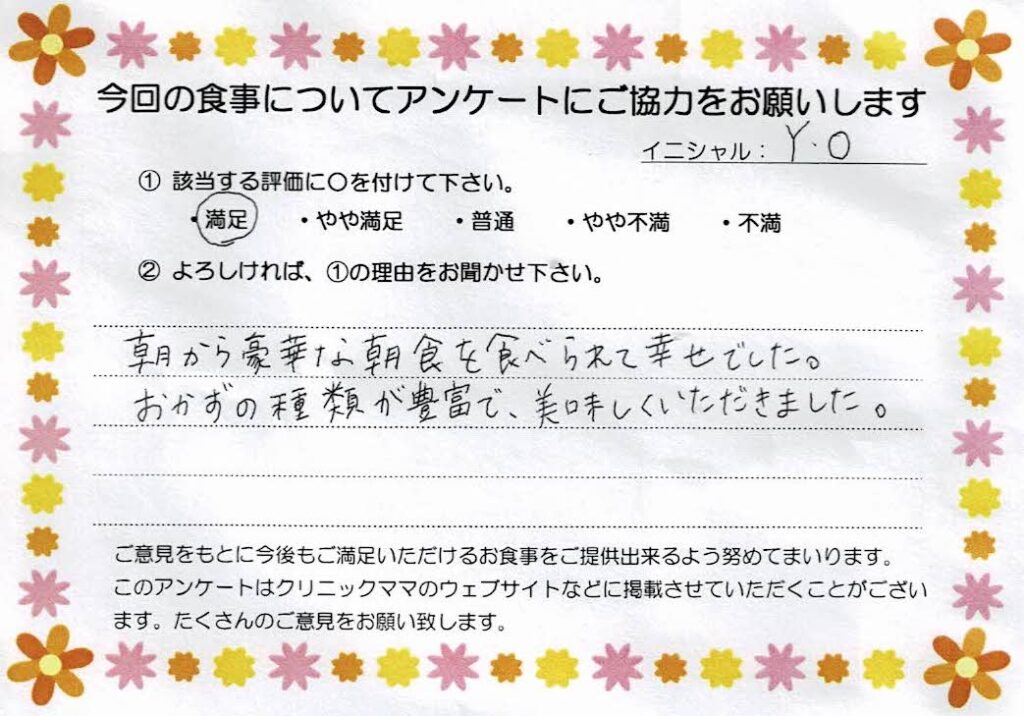 今回の食事についてアンケートにご協力をお願いします
イニシャル： Y.O
① 該当する評価に〇を付けて下さい。
・満足 ・やや満足 ・普通 ・やや不満 ・不満
② よろしければ、①の理由をお聞かせ下さい。
朝から豪華な朝食を食べられて幸せでした。
おかずの種類が豊富で、美味しくいただきました。
ご意見をもとに今後もご満足いただけるお食事をご提供出来るよう努めてまいります。
このアンケートはクリニックママのウェブサイトなどに掲載させていただくことがござい
ます。たくさんのご意見をお願い致します。